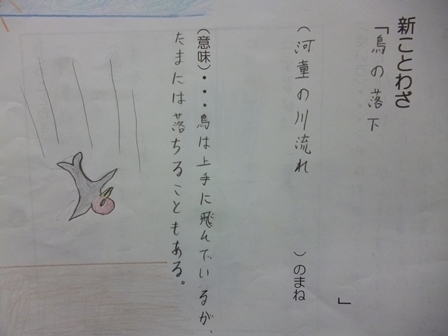 新ことわざ
「鳥の落下」
(河童の川流れ)のまね
(意味)・・・鳥は上手に飛んでいるが、
たまには落ちることもある。